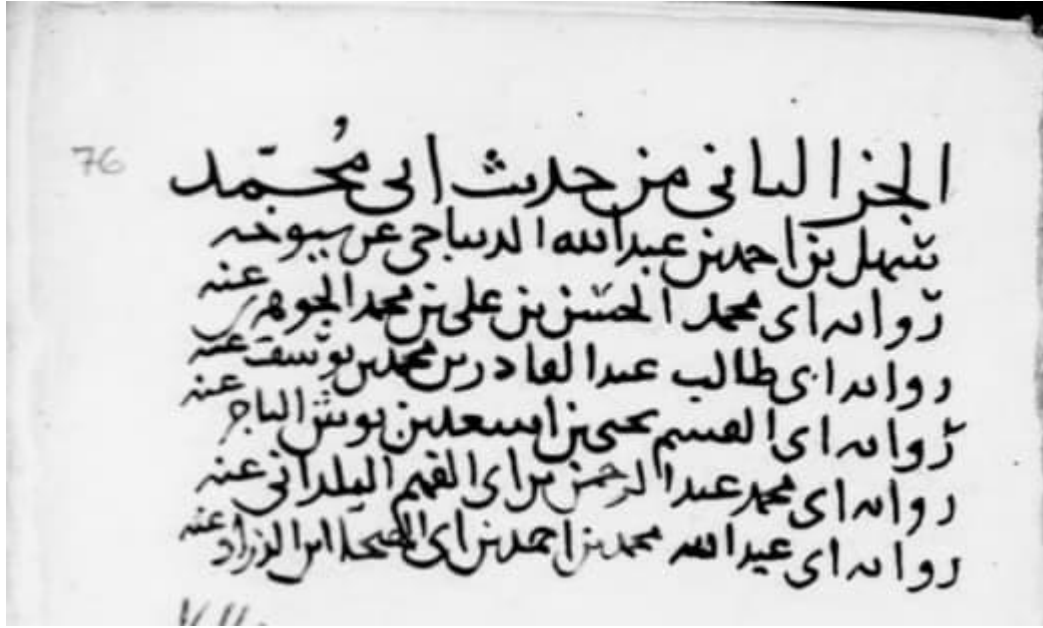 76
الجز الثاني من حديث ابي مُحمّد
سهل بن احمد بن عبد الله الديباجي عن شيوخه
رواية ابي محمد الحسن بن علي بن محمد الجوهري عنه
رواية ابي طالب عبد القادر بن محمد بن يوسف عنه
رواية ابي القسم يحيى بن اسعد بن بوش التاجر عنه
رواية ابي محمد عبد الرحمن بن ابي الفهم اليلداني عنه
رواية ابي عبد الله محمد بن احمد بن ابي الهيجا ابن الزراد عنه